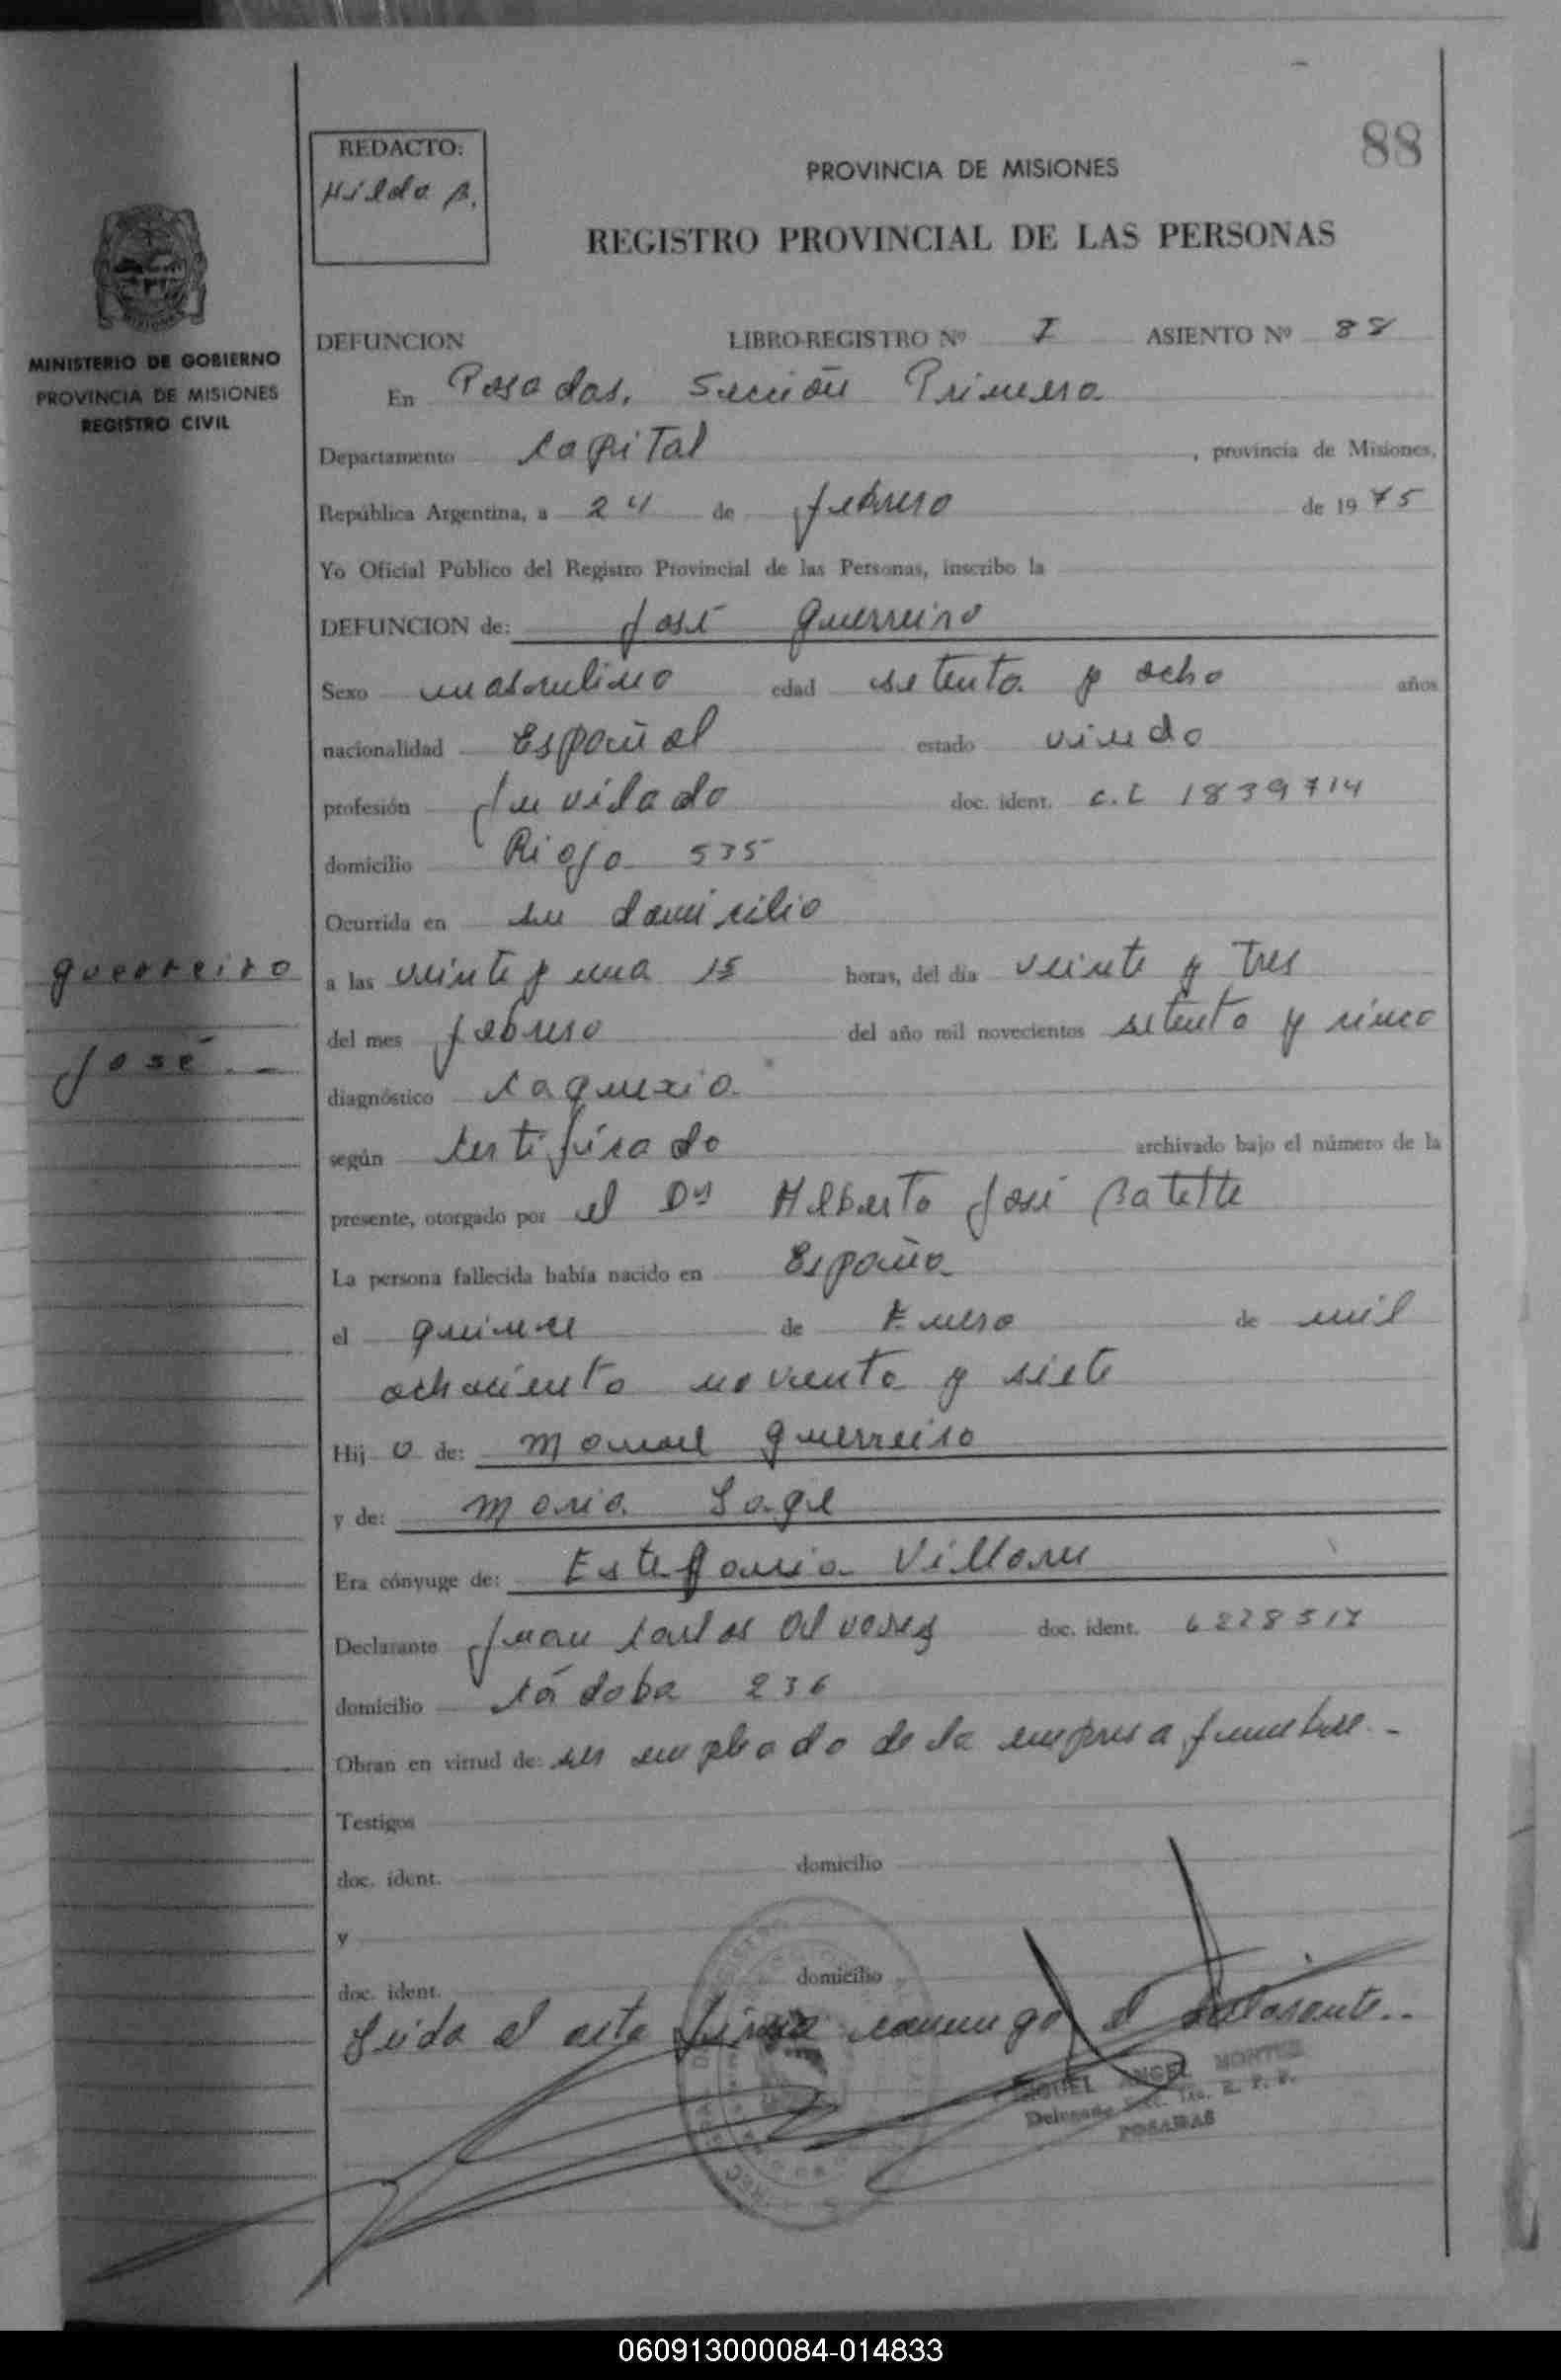 88
REDACTO:
Hilda B.
PROVINCIA DE MISIONES
REGISTRO PROVINCIAL DE LAS PERSONAS
MINISTERIO DE GOBIERNO
PROVINCIA DE MISIONES
REGISTRO CIVIL
DEFUNCION LIBRO-REGISTRO Nº I ASIENTO Nº 88
En Posadas. Sección Primera
Departamento Capital, provincia de Misiones,
República Argentina, a 24 de febrero de 1975
Yo Oficial Público del Registro Provincial de las Personas, inscribo la
DEFUNCION de: José Guerreiro
Sexo masculino edad setenta y ocho años
nacionalidad Español estado viudo
profesión Juvilado doc. ident. C.I. 1839714
domicilio Rioja 535
Ocurrida en su domicilio
Guerreiro
José.-
a las veinte y una 15 horas, del día veinte y tres
del mes febrero del año mil novecientos setenta y cinco
diagnóstico Caquexia
según Certificado archivado bajo el número de la
presente, otorgado por el Dr Alberto José
La persona fallecida había nacido en España
el quince de Enero de mil
ochociento noventa y siete
Hijo de: Manuel Guerreiro
y de: Maria Lage
Era cónyuge de: Estefania Villar
Declarante Juan Carlos Alvarez doc. ident.
domicilio Córdoba 236
Obran en virtud de: ser empleado de la empresa funebre.-
Testigos
doc. ident. domicilio
y
doc. ident. domicilio
Leida el acta firma conmigo el declarante..
MIGUEL ANGEL
POSADAS
060913000084-014833